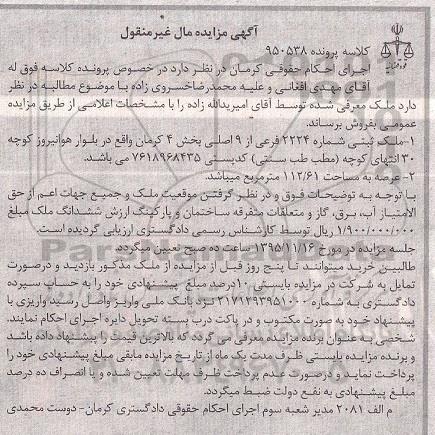 آگهی مزایده مال غیرمنقول
کلاسه پرونده ۹۵۰۵۳۸
اجرای احکام حقوقی کرمان در نظر دارد در خصوص پرونده کلاسه فوق له
آقای مهدی افغانی و علیه محمدرضاخسروی زاده با موضوع مطالبه در نظر
دارد ملک معرفی شده توسط آقای امیریدالله زاده را با مشخصات اعلامی از طریق مزایده
عمومی بفروش برساند.
۱-ملک ثبتی شماره ۲۲۲۴ فرعی از ۹ اصلی بخش ۴ کرمان واقع در بلوار هوانیروز کوچه
۳۰ انتهای کوچه (مطب طب سنتی) کدپستی ۷۶۱۸۹۶۸۴۳۵ می باشد.
۲- عرصه به مساحت ۱۱۲/۶۱ مترمربع میباشد.
با توجه به توضیحات فوق و در نظر گرفتن موقعیت ملک و جمیع جهات اعم از حق
الامتیاز آب، برق، گاز و متعلقات متفرقه ساختمان و پارکینگ ارزش ششدانگ ملک مبلغ
۱/۹۰۰/۰۰۰/۰۰۰ ریال توسط کارشناس رسمی دادگستری ارزیابی گردیده است.
جلسه مزایده در مورخ ۱۳۹۵/۱۱/۱۶ ساعت ده صبح تعیین میگردد.
طالبین خرید میتوانند تا پنج روز قبل از مزایده از ملک مذکور بازدید و درصورت
تمایل به شرکت در مزایده بایستی ۱۰درصد مبلغ پیشنهادی خود را به حساب سپرده
دادگستری به شماره ۲۱۷۱۲۹۳۹۵۱۰۰۰ نزد بانک ملی واریز واصل رسید واریزی با
پیشنهاد خود به صورت مکتوب و در پاکت درب بسته تحویل دایره اجرای احکام نمایند.
شخصی به عنوان برنده مزایده معرفی می گردد که بالاترین قیمت را پیشنهاد داده باشد
و برنده مزایده بایستی ظرف مدت یک ماه از تاریخ مزایده مابقی مبلغ پیشنهادی خود را
پرداخت نماید و درصورت عدم پرداخت ظرف مهلت تعیین شده و با انصراف ده درصد
مبلغ پیشنهادی به نفع دولت ضبط میگردد.
م الف ۲۰۸۱ مدیر شعبه سوم اجرای احکام حقوقی دادگستری کرمان- دوست محمدی